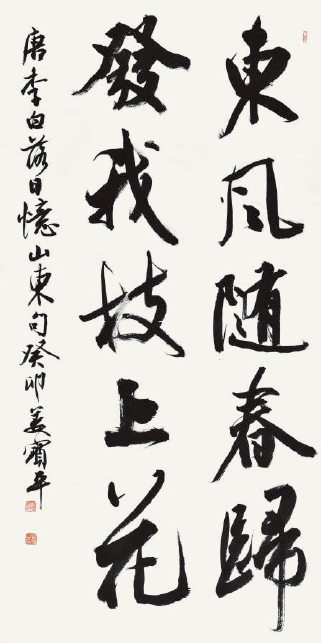 東風随春歸
發我枝上花
唐李白落日憶山東句癸卯姜寶平